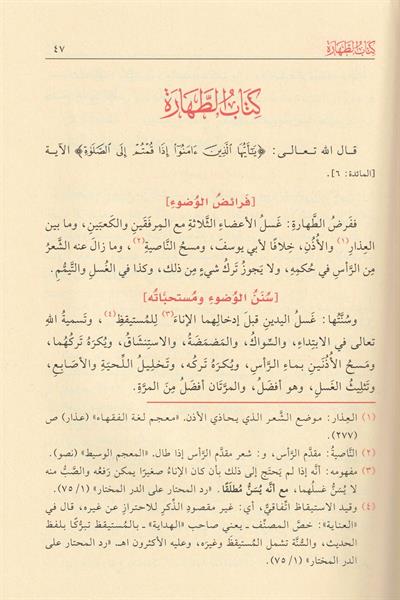 كتاب الطهارة
٤٧
كِتَابُ الطَّهَارَة
قال الله تعالى: ﴿يَٰٓأَيُّهَا الَّذِينَ ءَامَنُوٓا۟ إِذَا قُمْتُمْ إِلَى الصَّلَوٰةِ﴾ الآية
[المائدة: ٦].
[فَرائضُ الوُضوءِ]
ففَرضُ الطَّهارةِ: غَسلُ الأعضاءِ الثَّلاثةِ مع المِرفَقَينِ والكَعبَينِ، وما بين
العِذارِ(١) والأُذُنِ، خِلافًا لأبي يوسفَ، ومسحُ النَّاصيةِ(٢)، وما زالَ عنه الشَّعرُ
مِن الرَّأسِ في حُكمِهِ، ولا يَجوزُ تَركُ شيءٍ مِن ذلك، وكذا في الغُسلِ والتَّيمُّمِ.
[سُنَنُ الوُضوءِ ومُستحبَّاتُه]
وسُنَّتُها: غَسلُ اليدينِ قبلَ إدخالِهما الإناءَ(٣) لِلمُستيقظِ(٤)، وتَسميةُ اللهِ
تعالى في الابتداءِ، والسِّواكُ، والمَضمَضةُ، والاستِنشاقُ، ويُكرَهُ تَركُهُما،
ومَسحُ الأُذُنَينِ بماءِ الرَّأسِ، ويُكرَهُ تَركُه، وتَخليلُ اللِّحيَةِ والأصابعِ،
وتَثليثُ الغَسلِ، وهو أفضَلُ، والمرَّتان أفضلُ مِنَ المرَّةِ.
(١) العِذار: موضع الشَّعر الذي يحاذي الأذن. «معجم لغة الفقهاء» (عذار) ص
(٢٧٧)
(٢) النَّاصيَةُ: مقدَّم الرَّأس، و: شعر مقدَّم الرَّأس إذا طال. «المعجم الوسيط» (نصو).
(٣) مفهومه: أنَّه إذا لم يَحتَج إلى ذلك بأن كان الإناءُ صغيرًا يمكن رَفعُه والصَّبُّ منه
لا يُسَنُّ غسلُهما، مع أنَّه يُسَنُّ مُطلَقًا. «رد المحتار على الدر المختار» (١/ ٧٥).
(٤) وقيد الاستيقاظ اتِّفاقيٌّ، أي: غير مقصودِ الذِّكرِ للاحترازِ عن غيره، قال في
«العناية»: خصَّ المصنِّف ـ يعني صاحب «الهداية» ـ بالمُستيقظ تبرُّكًا بلفظ
الحديث، والسُّنَّة تشمل المُستيقظَ وغيرَه، وعليه الأكثرون اهـ. «رد المحتار على
الدر المختار» (١/ ٧٥).